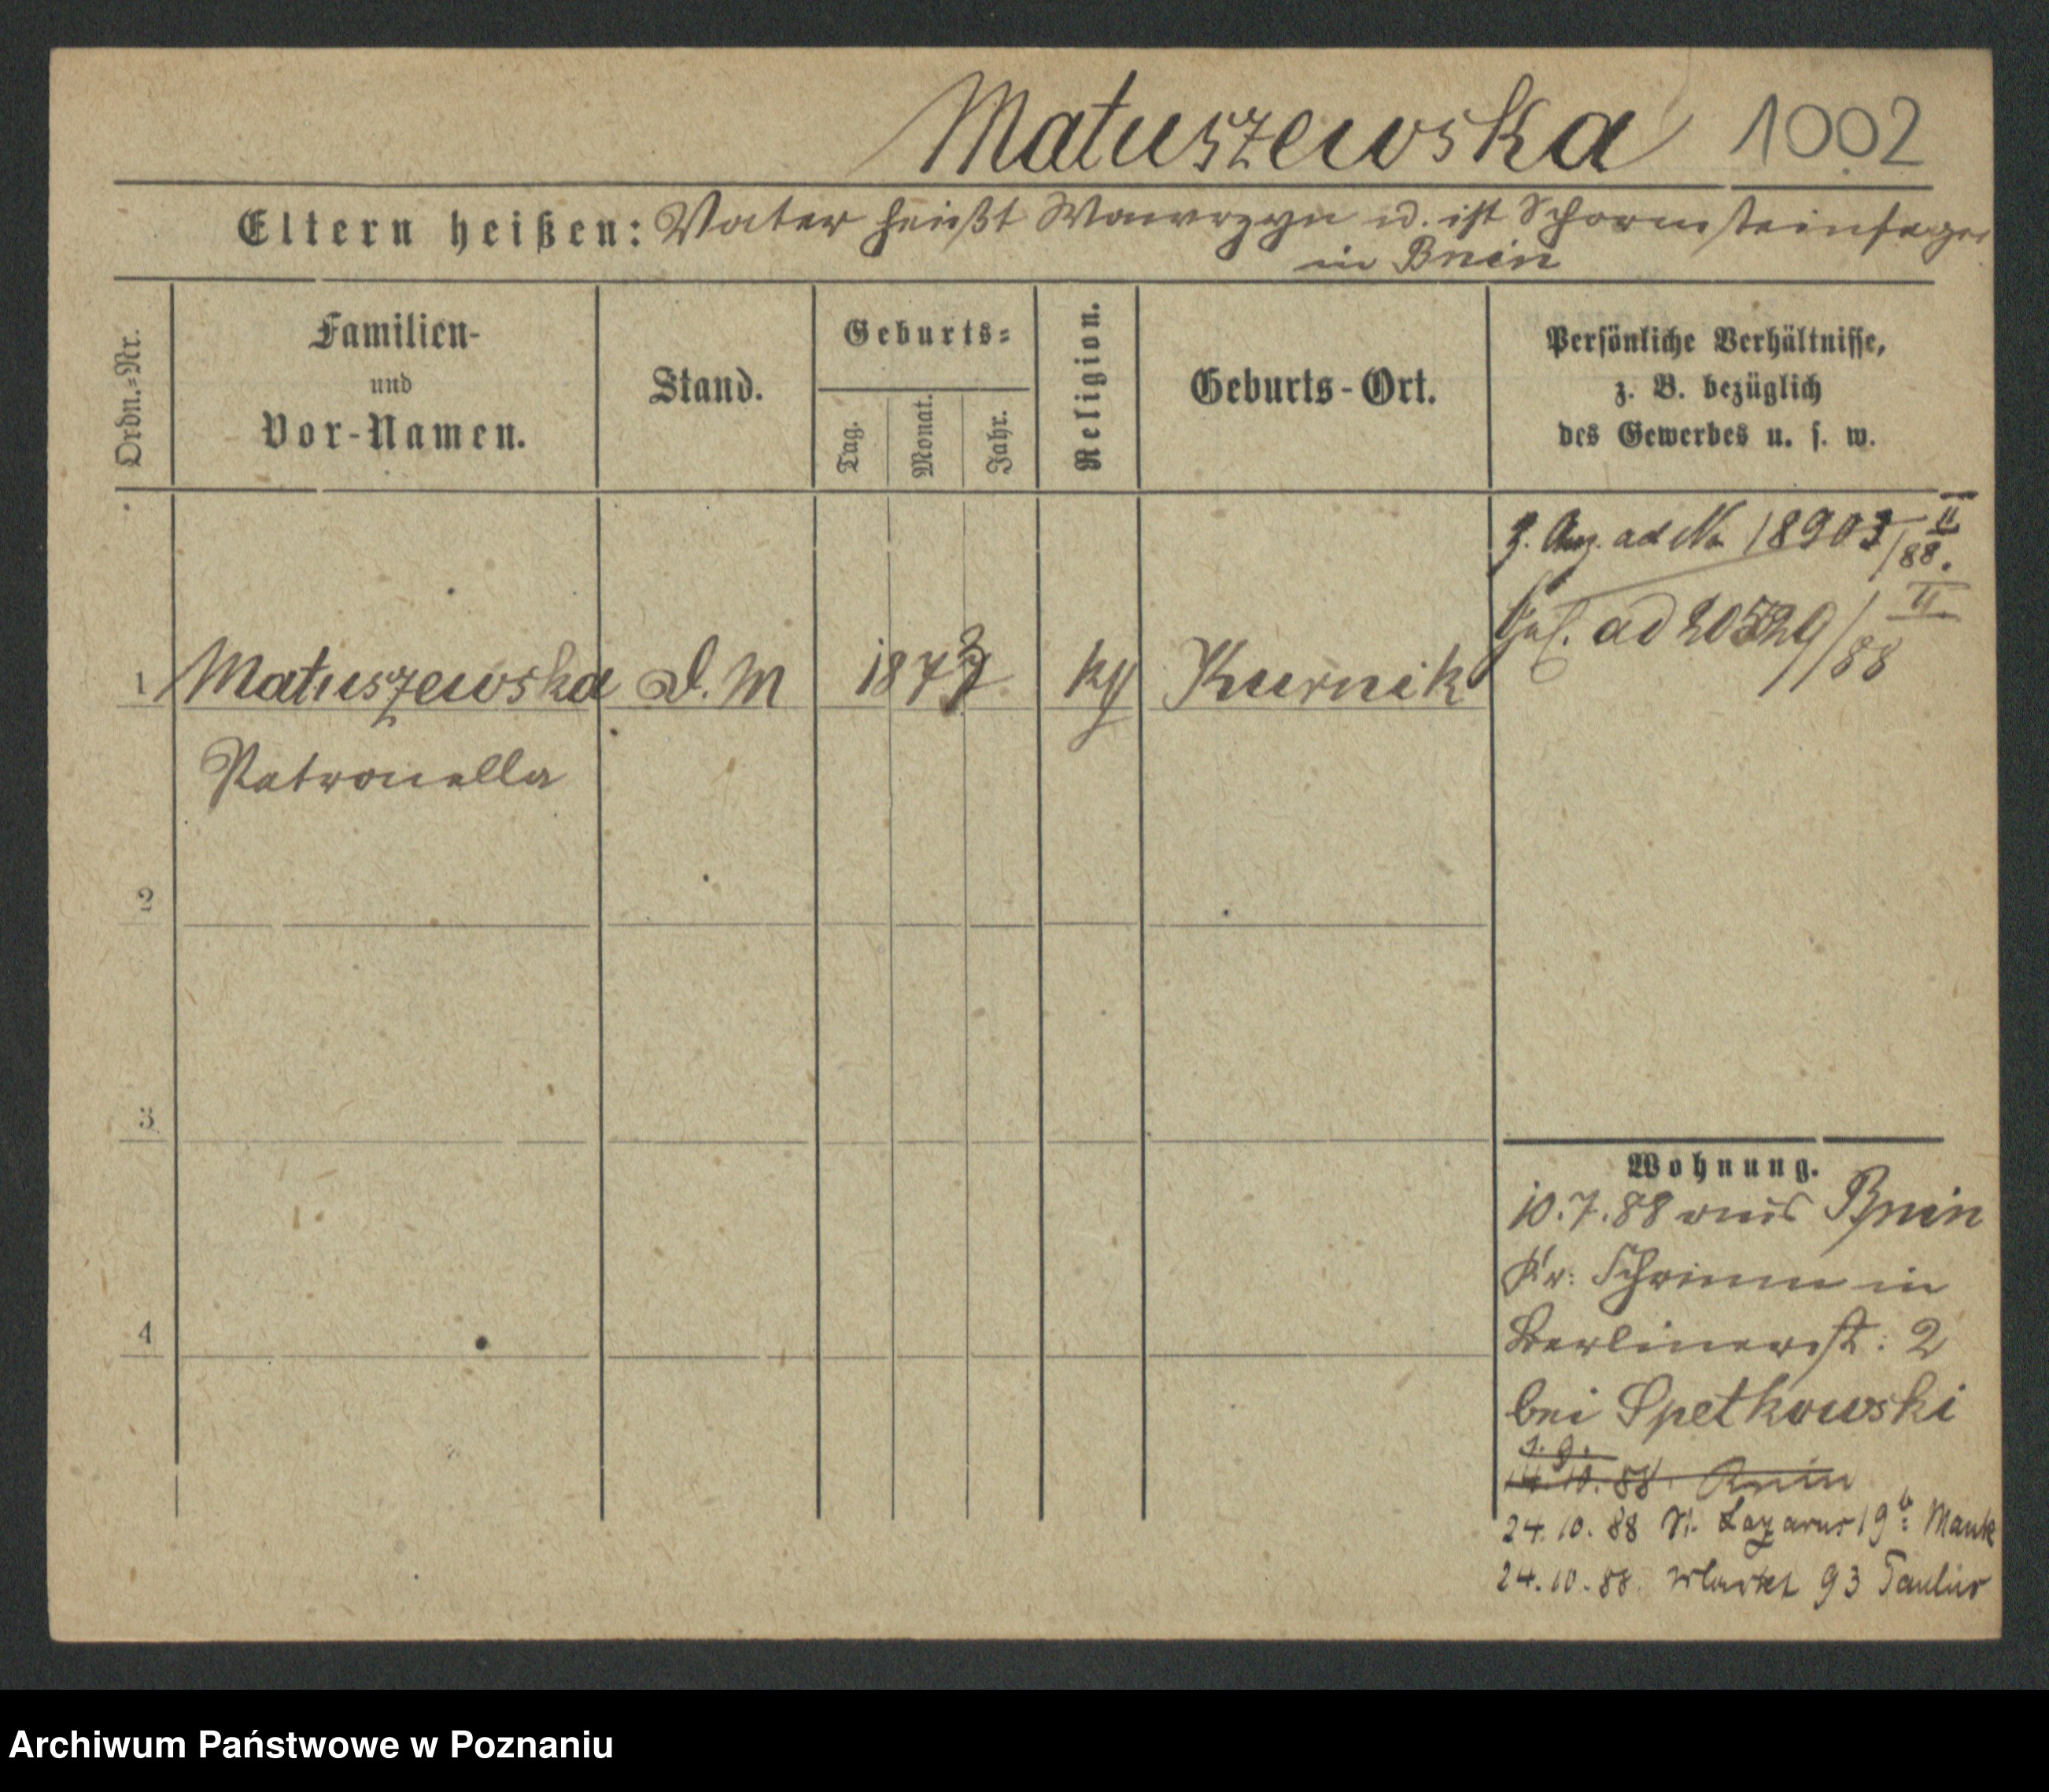 Matuszewska 1002
Eltern heißen: Vater heißt Wawrzyn u. ist Schornsteinfeger
in Bnin
Ordn.=Nr.
Familien-
und
Vor-Namen.
Stand.
Geburts=
Tag.
Monat.
Jahr.
Religion.
Geburts-Ort.
Persönliche Verhältnisse,
z. B. bezüglich
des Gewerbes u. s. w.
ad No 18903/88. II
ad 20529/88 II
1 Matuszewska D. M 1873 kg Kurnik
Petronella
2
3
4
Wohnung.
10.7.88 aus Bnin
Kr: Schrimm in
Berlinerst: 2
bei Spetkowski
1.9.
14.10.88. Bnin
24.10.88 St. Lazarus 19b: Mank
24.10.88. 93 Paulus
Archiwum Państwowe w Poznaniu